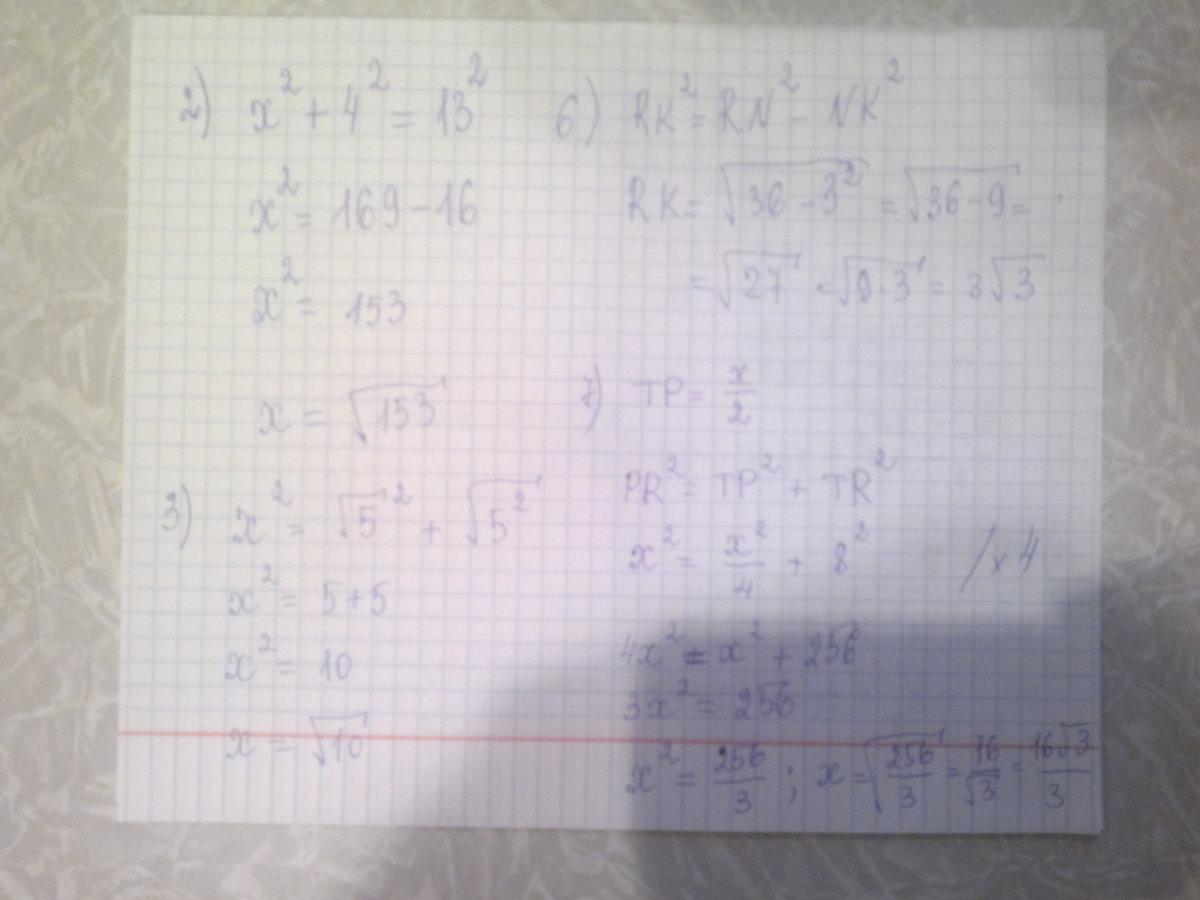 2) x² + 4² = 13²
x² = 169 - 16
x² = 153
x = √153
3) x² = √5² + √5²
x² = 5+5
x² = 10
x = √10
6) RK² = RN² - NK²
RK = √36 - 3² = √36 - 9 =
= √27 = √9·3 = 3√3
7) TP = x/2
PR² = TP² + TR²
x² = x²/4 + 8² /x4
4x² = x² + 256
3x² = 256
x² = 256/3 ; x = √256/3 = 16/√3 = 16√3/3